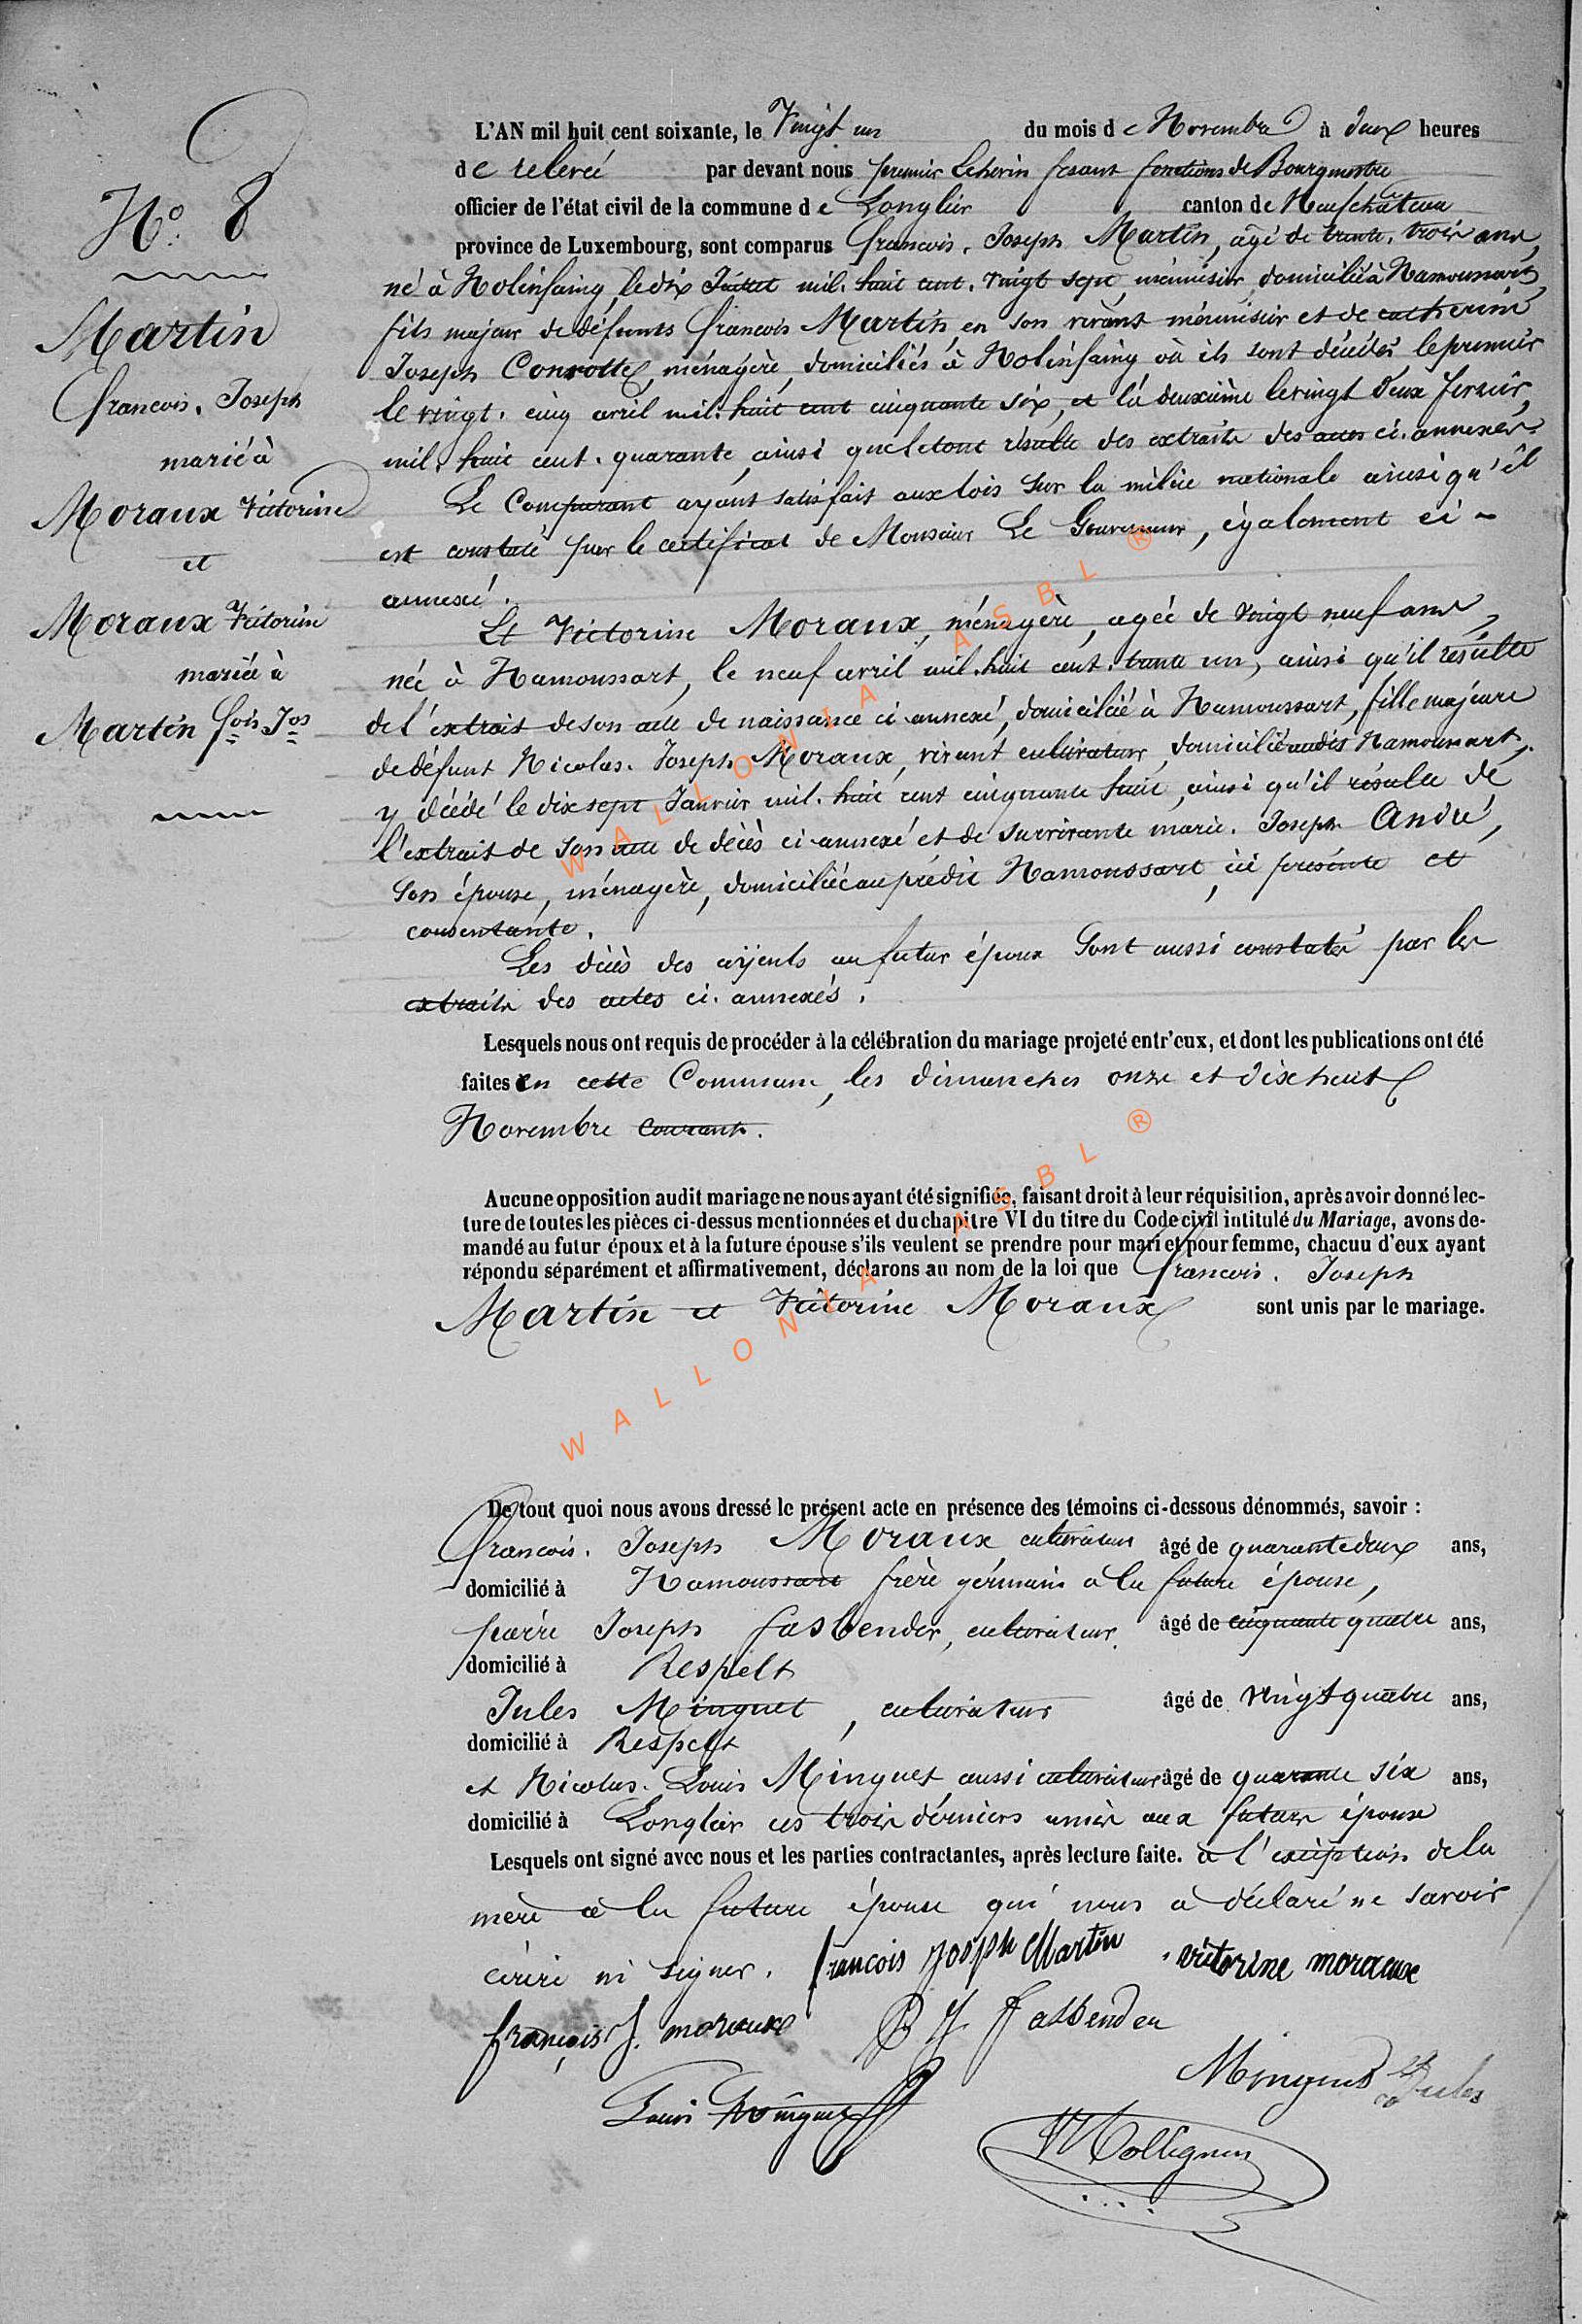 N.o 8
Martin
francois. Joseph
marié à
Moraux Victorine
et
Moraux Victorine
mariée à
Martin fois Jos
L'AN mil huit cent soixante, le Vingt un du mois de Novembre à deux heures
de relevée par devant nous premier Echevin fesant fonctions de Bourgmestre
officier de l'état civil de la commune de Longlier canton de Neufchateau
province de Luxembourg, sont comparus francois. Joseph Martin, âgé de trente. trois ans,
né à Molinfaing, le dix Juillet mil. huit cent. vingt sept, ménuisier, domicilié à Hamoussart,
fils majeur de défunts francois Martin, en son vivant ménuisier et de catherine
Joseph Conrotte, ménagère, domiciliés à Molinfaing où ils sont décédés le premier
le vingt. cinq avril mil. huit cent cinquante six, et la deuxième le vingt deux fevrier,
mil. huit cent. quarante, ainsi que le tout résulte des extraits des actes ci. annexés.
Le Comparant ayant satisfait aux lois sur la milice nationale ainsi qu'il
est constaté par le certificat de Monsieur Le Gouverneur, également ci-
annexé.
Et Victorine Moraux, ménagère, agée de vingt neuf ans,
née à Hamoussart, le neuf avril mil. huit cent. trente un, ainsi qu'il résulte
de l'extrait de son acte de naissance ci annexé, domiciliée à Hamoussart, fille majeure
de défunt Nicolas. Joseph Moraux, vivant cultivateur, domicilié audit Hamoussart,
y décédé le dix sept Janvier mil. huit cent cinquante huit, ainsi qu'il résulte de
l'extrait de son acte de décès ci annexé et de survivante marie. Joseph André,
son épouse, ménagère, domiciliée au prédit Hamoussart, ici présente et
consentante.
Les décès des aÿeuls au futur époux sont aussi constatés par les
extraits des actes ci. annexés.
Lesquels nous ont requis de procéder à la célébration du mariage projeté entr'eux, et dont les publications ont été
faites en cette Commune, les dimanches onze et dix huit
Novembre Courant.
Aucune opposition audit mariage ne nous ayant été signifiée, faisant droit à leur réquisition, après avoir donné lec-
ture de toutes les pièces ci-dessus mentionnées et du chapitre VI du titre du Code civil intitulé du Mariage, avons de-
mandé au futur époux et à la future épouse s'ils veulent se prendre pour mari et pour femme, chacuu d'eux ayant
répondu séparément et affirmativement, déclarons au nom de la loi que francois. Joseph
Martin et Victorine Moraux sont unis par le mariage.
De tout quoi nous avons dressé le présent acte en présence des témoins ci-dessous dénommés, savoir :
francois. Joseph Moraux cultivateur âgé de quarante deux ans,
domicilié à Hamoussart frère germain à la future épouse,
Joseph fasbender, cultivateur. âgé de cinquante quatre ans,
domicilié à Respelt
Jules Minguet, cultivateur âgé de vingt quatre ans,
domicilié à Respelt
et Nicolas. Louis Minguet aussi cultivateur âgé de quarante six ans,
domicilié à Longlier ces trois derniers amis aux future épouse
Lesquels ont signé avec nous et les parties contractantes, après lecture faite. à l'exception de la
mère à la future épouse qui nous a déclaré ne savoir
écrire ni signer. francois joseph Martin victorine moraux
françois J. moraux P J fasbender
Minguet Jules
Louis Minguet
Collignon
WALLONIA ASBL ®
WALLONIA ASBL ®